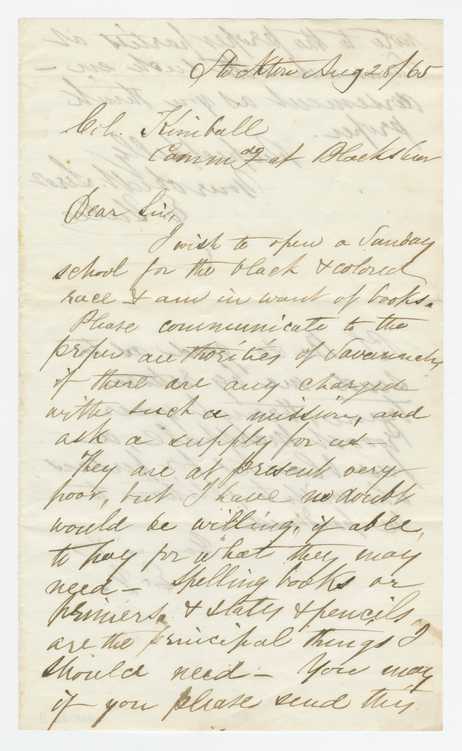 Stockton Aug 28/65
Col. Kimball
Commdg at Blackshear
Dear Sir,
I wish to open a Sunday
school for the black & colored
race & am in want of books.
Please communicate to the
proper authorities of Savannah,
if there are any charged
with such a mission, and
ask a supply for us —
They are at present very
poor, but I have no doubt
would be willing, if able,
to pay for what they may
need — Spelling books or
primers & slates & pencils
are the principal things I
should need — You may
if you please send this